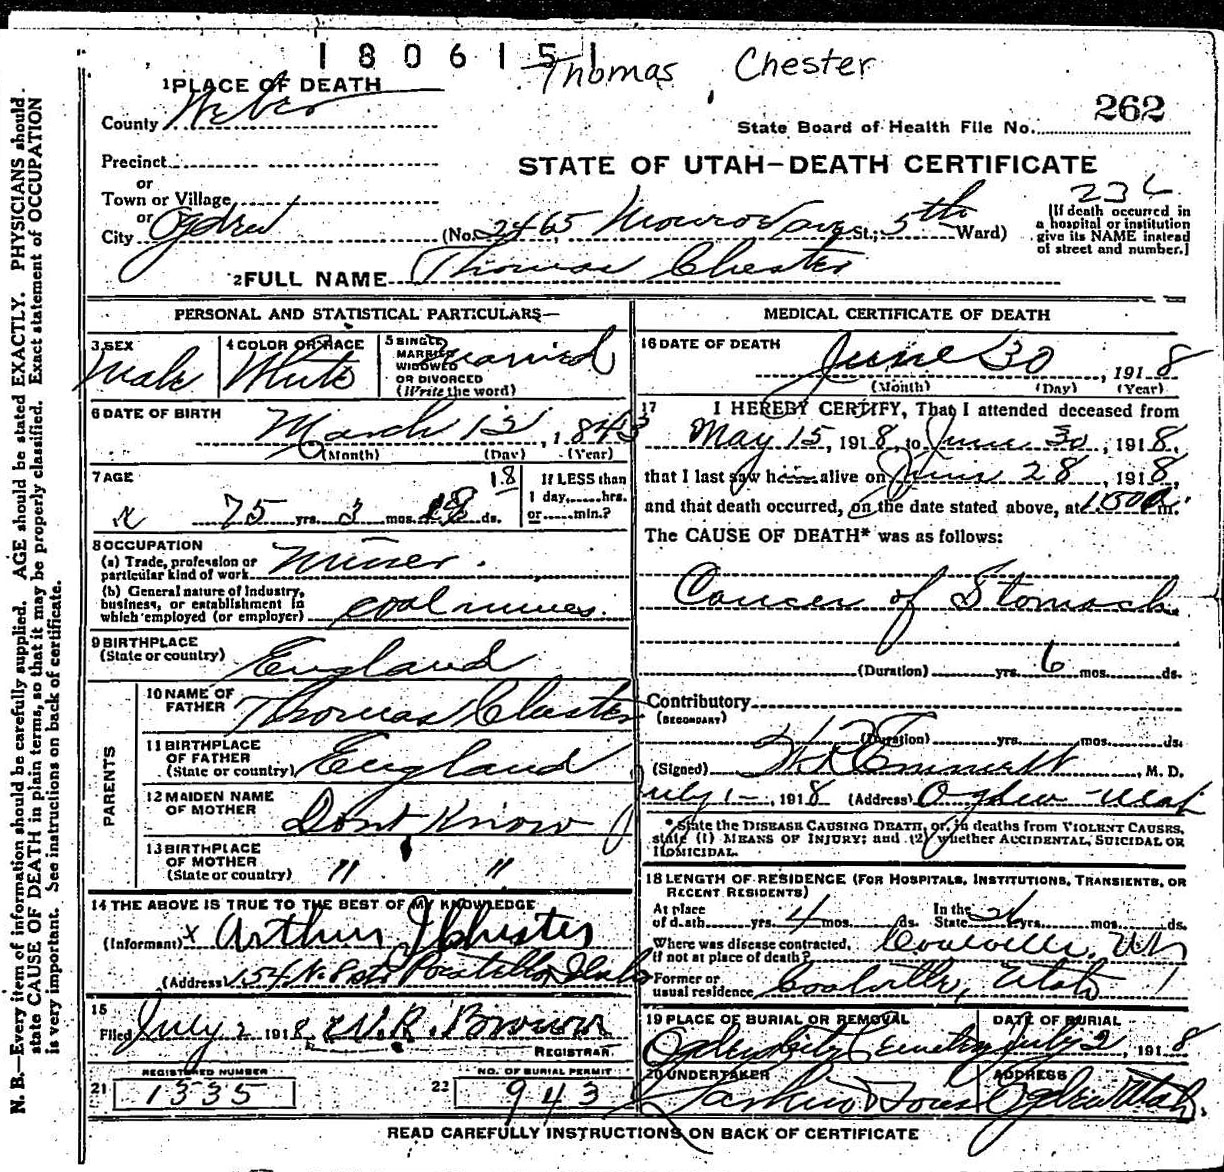 1806151
Thomas Chester
1 PLACE OF DEATH
County Weber
262
State Board of Health File No.
Precinct
STATE OF UTAH—DEATH CERTIFICATE
or
Town or Village
or
City Ogden
(No. 2465 Monroe Ave St.; 5th Ward)
[If death occurred in
a hospital or institution
give its NAME instead
of street and number.]
2 FULL NAME Thomas Chester
PERSONAL AND STATISTICAL PARTICULARS—
3 SEX
Male
4 COLOR OR RACE
White
5 SINGLE
MARRIED
WIDOWED
OR DIVORCED
(Write the word)
Married
6 DATE OF BIRTH
March 12, 1843
(Month) (Day) (Year)
7 AGE
75 yrs. 3 mos. 18 ds.
If LESS than
1 day,......hrs.
or......min.?
8 OCCUPATION
(a) Trade, profession or
particular kind of work Miner.
(b) General nature of industry,
business, or establishment in
which employed (or employer) coal mines.
9 BIRTHPLACE
(State or country) England
PARENTS
10 NAME OF
FATHER Thomas Chester
11 BIRTHPLACE
OF FATHER
(State or country) England
12 MAIDEN NAME
OF MOTHER Dont Know
13 BIRTHPLACE
OF MOTHER
(State or country) " "
14 THE ABOVE IS TRUE TO THE BEST OF MY KNOWLEDGE
(Informant) x Arthur J Chester
(Address) 154 N. 8 Pocatello, Idaho
15
Filed July 2 1918 W.R. Brown
REGISTRAR.
REGISTERED NUMBER
21 1335
NO. OF BURIAL PERMIT
22 943
MEDICAL CERTIFICATE OF DEATH
16 DATE OF DEATH
June 30, 1918
(Month) (Day) (Year)
17 I HEREBY CERTIFY, That I attended deceased from
May 15, 1918, to June 30, 1918,
that I last saw him alive on June 28, 1918,
and that death occurred, on the date stated above, at m.
The CAUSE OF DEATH* was as follows:
Cancer of Stomach
(Duration) yrs. 6 mos. ds.
Contributory
(SECONDARY)
(Duration) yrs. mos. ds.
(Signed) Emmett, M. D.
July 1-, 1918 (Address) Ogden Utah
*State the DISEASE CAUSING DEATH, or, in deaths from VIOLENT CAUSES,
state (1) MEANS OF INJURY; and (2) whether ACCIDENTAL, SUICIDAL OR
HOMICIDAL.
18 LENGTH OF RESIDENCE (FOR HOSPITALS, INSTITUTIONS, TRANSIENTS, OR
RECENT RESIDENTS)
At place
of death yrs. 4 mos. ds. In the
State yrs. mos. ds.
Where was disease contracted,
if not at place of death? Coalville, Utah
Former or
usual residence Coalville, Utah
19 PLACE OF BURIAL OR REMOVAL
Ogden City Cemetery
DATE OF BURIAL
July 2, 1918
20 UNDERTAKER
Larkin & Sons
ADDRESS
Ogden Utah.
READ CAREFULLY INSTRUCTIONS ON BACK OF CERTIFICATE
N. B.—Every item of information should be carefully supplied. AGE should be stated EXACTLY. PHYSICIANS should
state CAUSE OF DEATH in plain terms, so that it may be properly classified. Exact statement of OCCUPATION
is very important. See instructions on back of certificate.